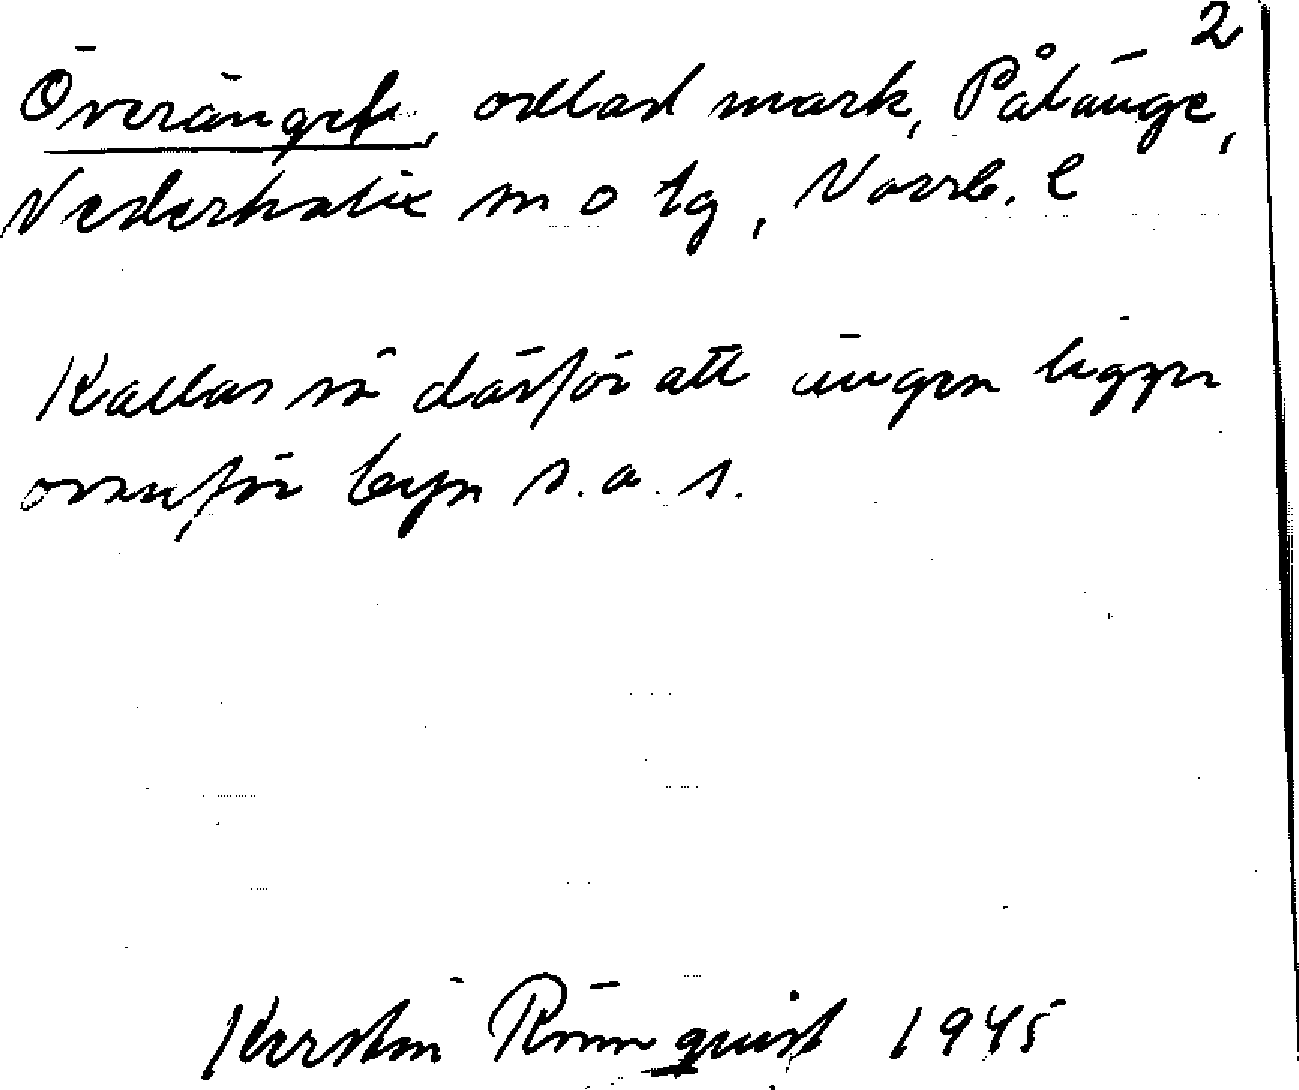 2
Överänget, odlad mark, Pålänge,
Nederkalix sn o tg, Norrb. l
Kallas så därför att ängen ligger
ovanför byn s. a. s.
Kerstin Rönnquist 1945